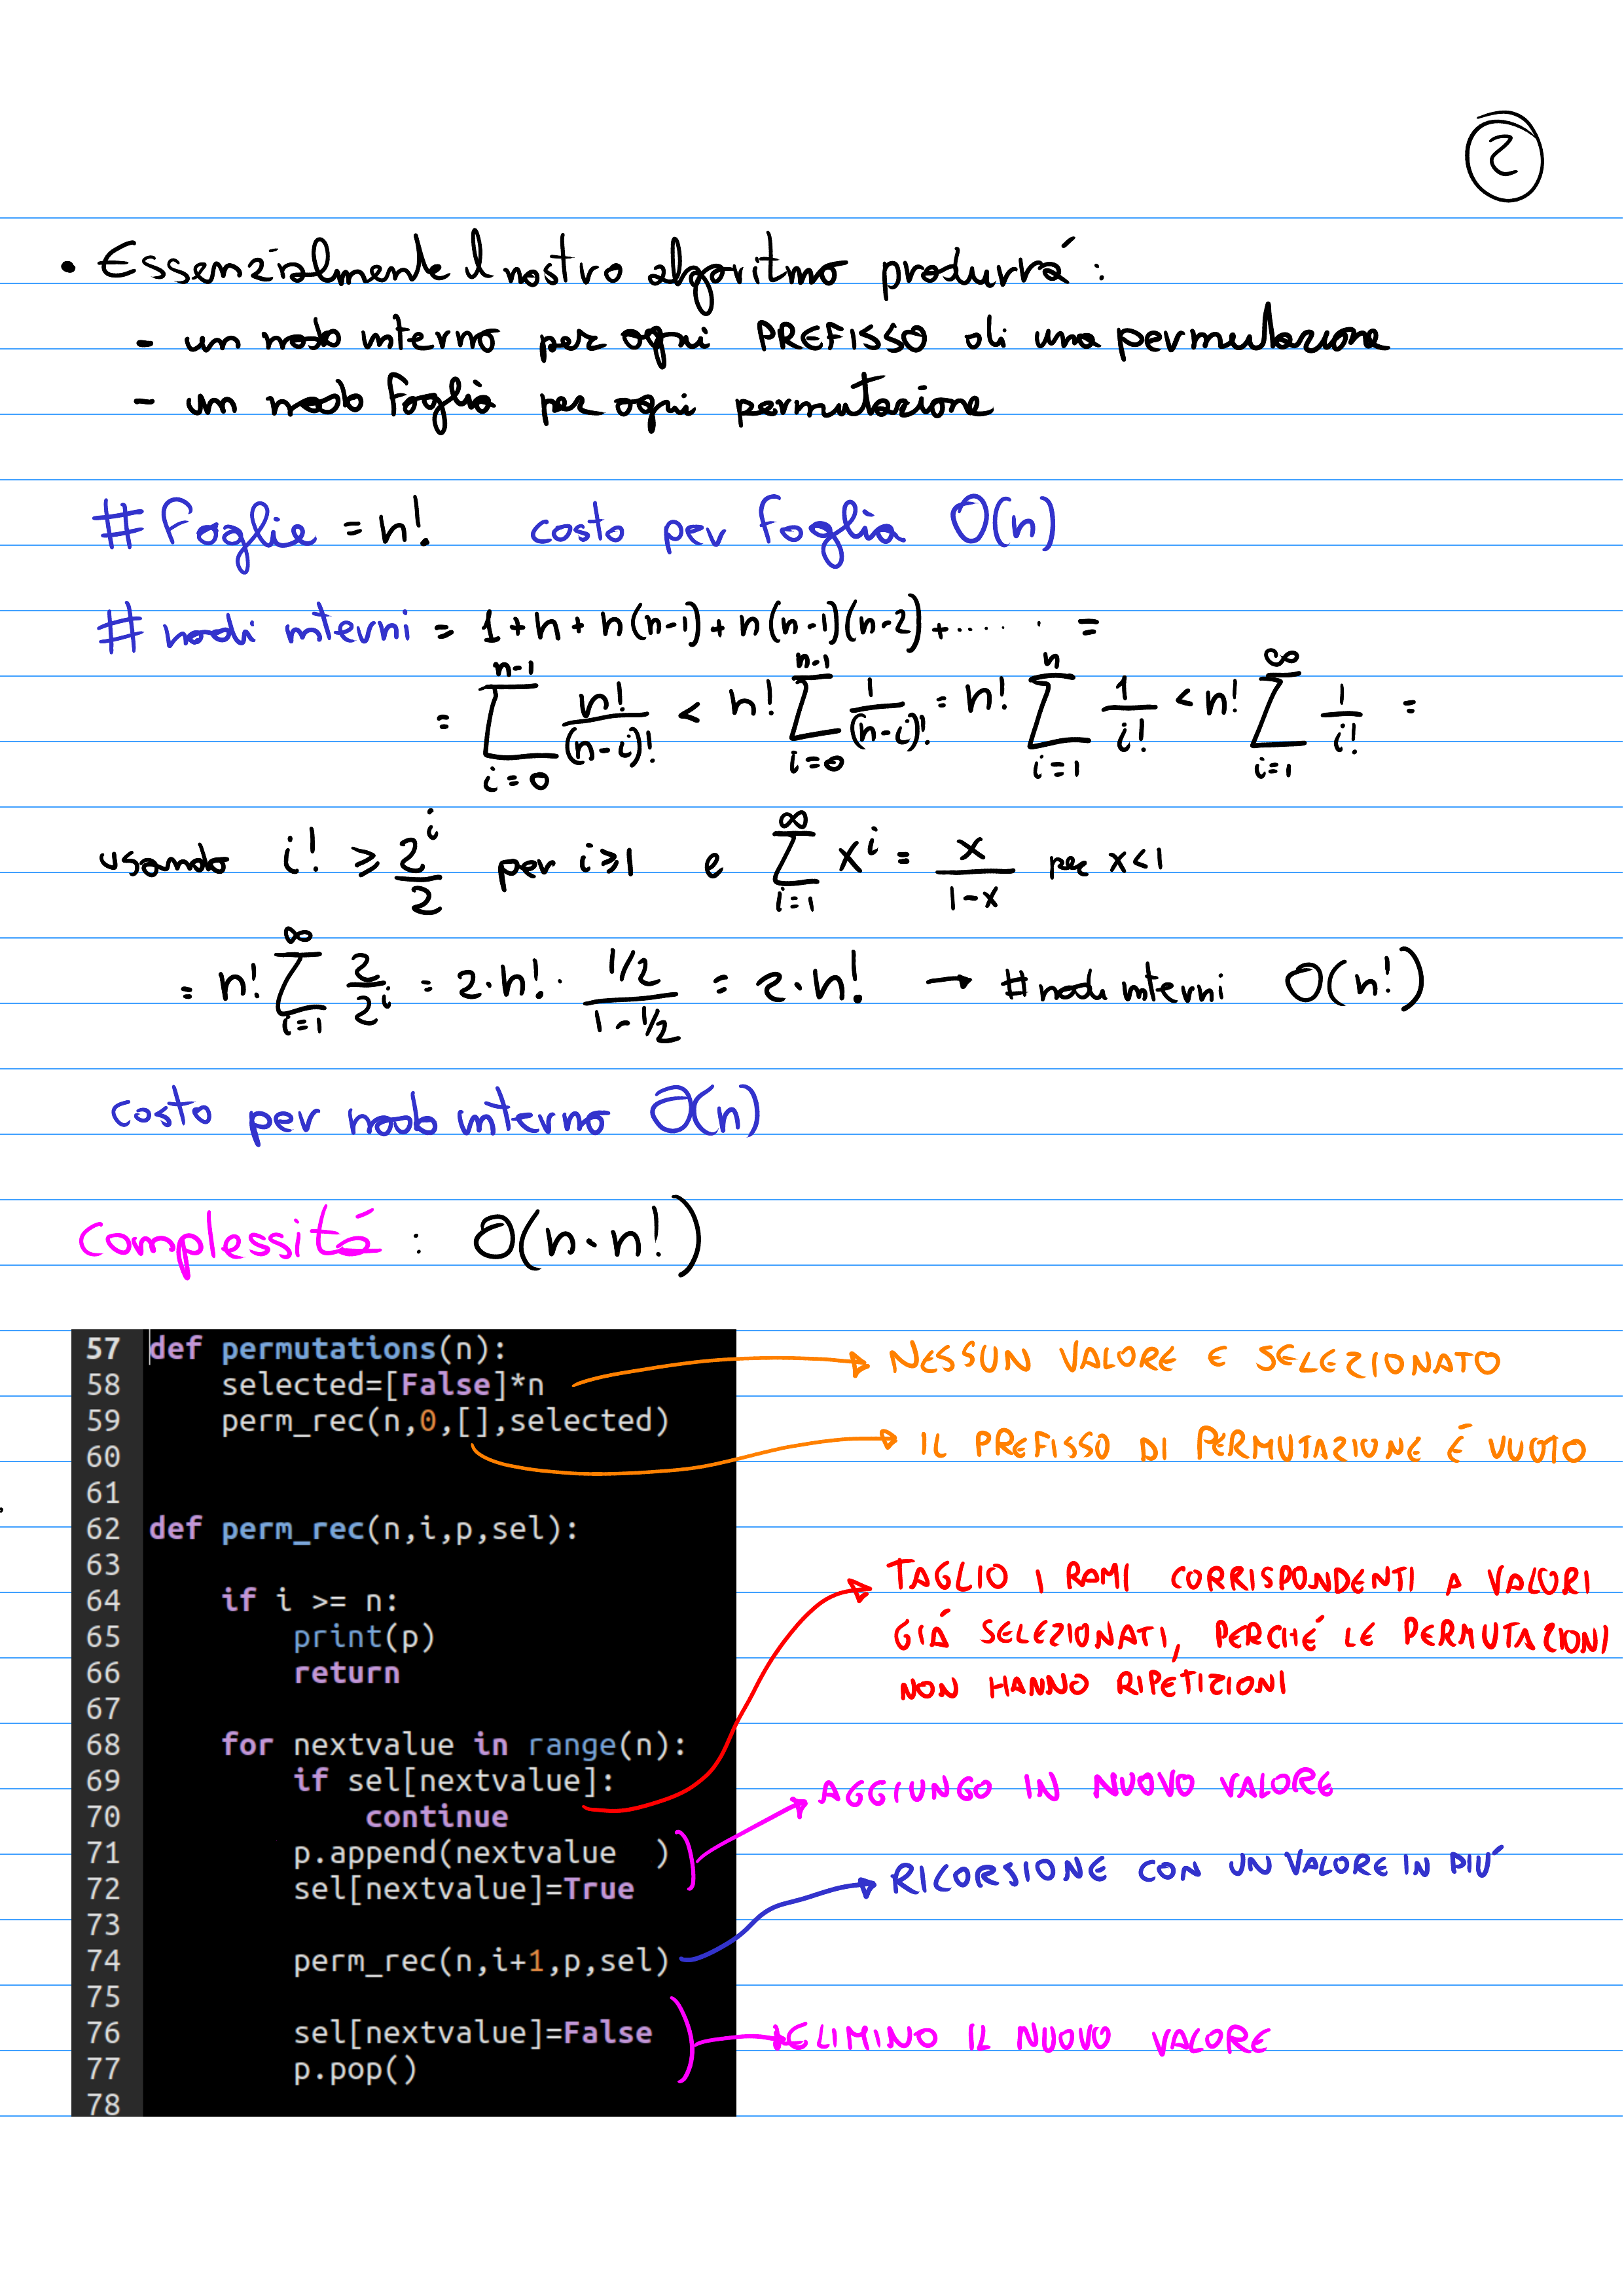 2
• Essenzialmente il nostro algoritmo produrrá :
- un nodo interno per ogni PREFISSO di una permutazione
- un nodo foglia per ogni permutazione
# foglie = n! costo per foglia O(n)
# nodi interni = 1 + n + n(n-1) + n(n-1)(n-2) + ...... =
= ∑_{i=0}^{n-1} n!/(n-i)! < n! ∑_{i=0}^{n-1} 1/(n-i)! = n! ∑_{i=1}^{n} 1/i! < n! ∑_{i=1}^{∞} 1/i! =
usando i! ≥ 2^i/2 per i≥1 e ∑_{i=1}^{∞} x^i = x/(1-x) per x<1
= n! ∑_{i=1}^{∞} 2/2^i = 2·n! · (1/2)/(1-1/2) = 2·n! → # nodi interni O(n!)
costo per nodo interno O(n)
Complessitá : O(n·n!)
57 def permutations(n):
58 selected=[False]*n
59 perm_rec(n,0,[],selected)
60
61
62 def perm_rec(n,i,p,sel):
63
64 if i >= n:
65 print(p)
66 return
67
68 for nextvalue in range(n):
69 if sel[nextvalue]:
70 continue
71 p.append(nextvalue )
72 sel[nextvalue]=True
73
74 perm_rec(n,i+1,p,sel)
75
76 sel[nextvalue]=False
77 p.pop()
78
NESSUN VALORE E SELEZIONATO
IL PREFISSO DI PERMUTAZIONE É VUOTO
TAGLIO I RAMI CORRISPONDENTI A VALORI
GIÁ SELEZIONATI, PERCHÉ LE PERMUTAZIONI
NON HANNO RIPETIZIONI
AGGIUNGO IN NUOVO VALORE
RICORSIONE CON UN VALORE IN PIU'
ELIMINO IL NUOVO VALORE